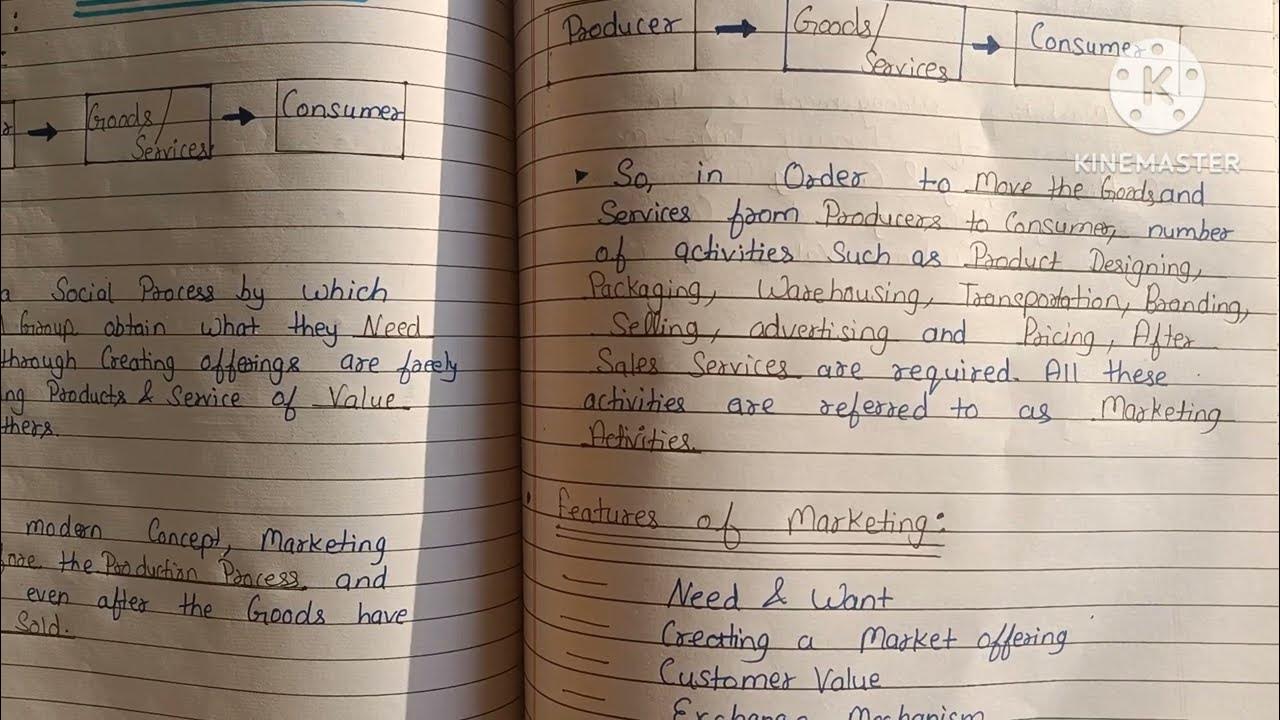 :
Goods/
Services
Consumer
a Social Process by which
Group obtain what they Need
through Creating offerings are freely
ng Products & Service of Value
thers.
modern Concept, Marketing
the Production Process and
even after the Goods have
Sold.
Producer
Goods/
Services
Consumer
KINEMASTER
So, in Order to Move the Goods and
Services from Producers to Consumer, number
of activities Such as Product Designing,
Packaging, Warehousing, Transportation, Branding,
Selling, advertising and Pricing, After
Sales Services are required. All these
activities are referred to as Marketing
Activities.
Features of Marketing:
Need & Want
Creating a Market offering
Customer Value
Exchange Mechanism